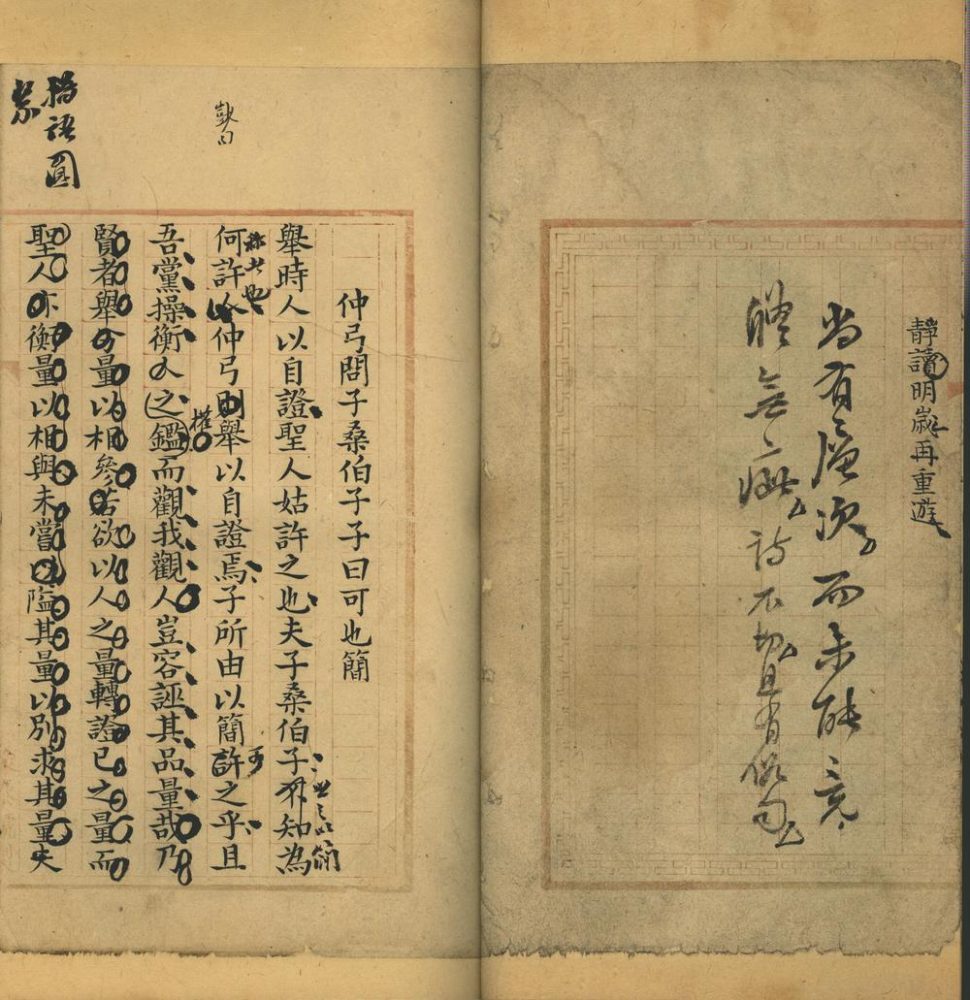 靜讀明歲再重遊
尚有層次而未能意
體無疵詩不切且有俗句
仲弓問子桑伯子子曰可也簡
舉時人以自證聖人姑許之也夫子桑伯子不知為
何許人仲弓則舉以自證焉子所由以簡許之乎且
吾黨操衡人之鑑而觀我觀人豈容誣其品量哉乃
權
賢者舉今量以相參若欲以人之量轉證己之量而
聖人亦衡量以相與未嘗以隘其量以別求其量夫
語圓